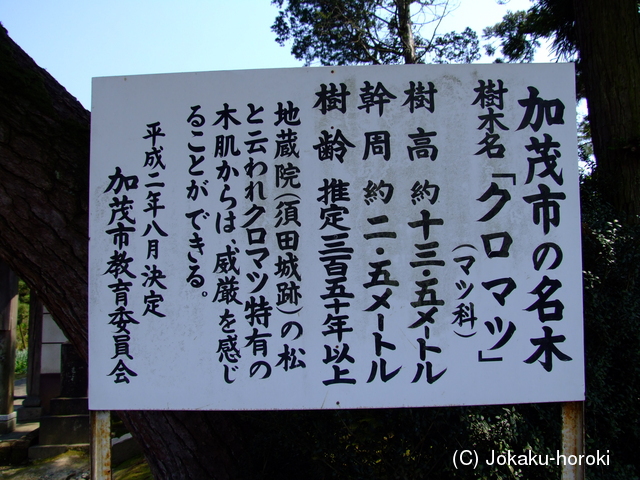 加茂市の名木
樹木名「クロマツ」
(マツ科)
樹高 約十三・五メートル
幹周 約二・五メートル
樹齢 推定三百五十年以上
地蔵院(須田城跡)の松
と云われクロマツ特有の
木肌からは、威厳を感じ
ることができる。
平成二年八月決定
加茂市教育委員会
(C) Jokaku-horoki